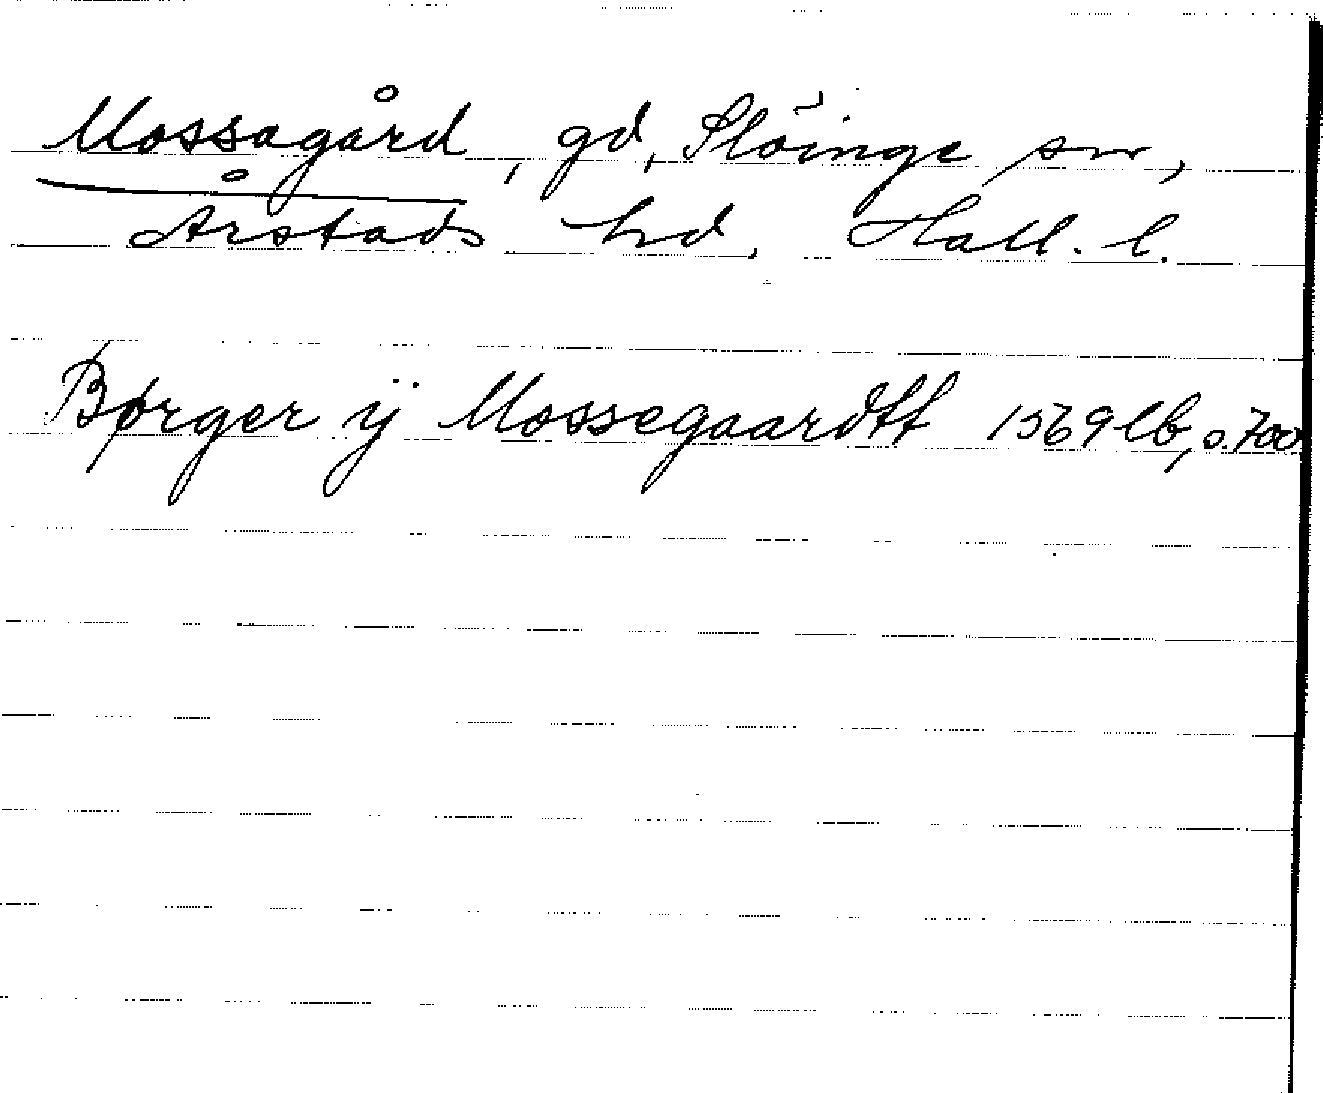 Mossagård, gd, Slöinge sn,
Årstads hd, Hall. l.
Børger ÿ Mossegaardtt 1569 lb, s. 700